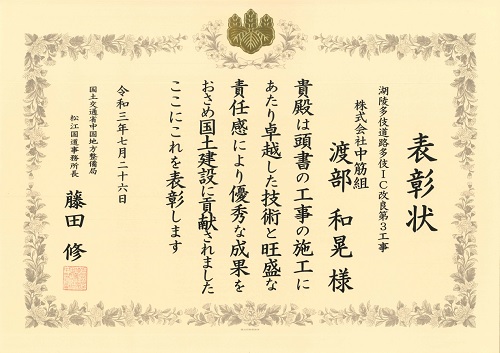 表彰状
湖陵多伎道路多伎IC改良第3工事
株式会社中筋組
渡部 和晃 様
貴殿は頭書の工事の施工に
あたり卓越した技術と旺盛な
責任感により優秀な成果を
おさめ国土建設に貢献されました
ここにこれを表彰します
令和三年七月二十六日
国土交通省中国地方整備局
松江国道事務所長
藤田 修